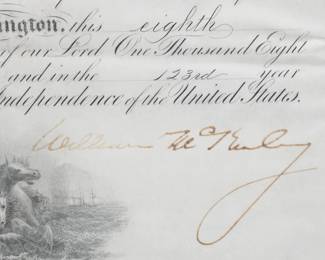 ington, this eighth
of our Lord One Thousand Eight
and in the 123rd year
Independence of the United States.
William McKinley